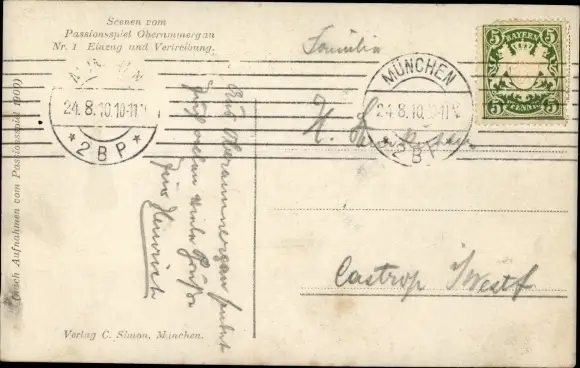 Scenen vom
Passionsspiel Oberammergau
Nr. 1 Einzug und Vertreibung.
(nach Aufnahmen vom Passionsspiel 1900)
MÜNCHEN
24.8.10.10-11V.
* 2 B P *
MÜNCHEN
24.8.10.10-11V.
2 B P
BAYERN
5 5
5 5
PFENNIG
Aus Oberammergau sendet
Euch allen viele Grüße
Euer Heinrich
Familie
H.
Castrop i/Westf
Verlag C. Simon, München.